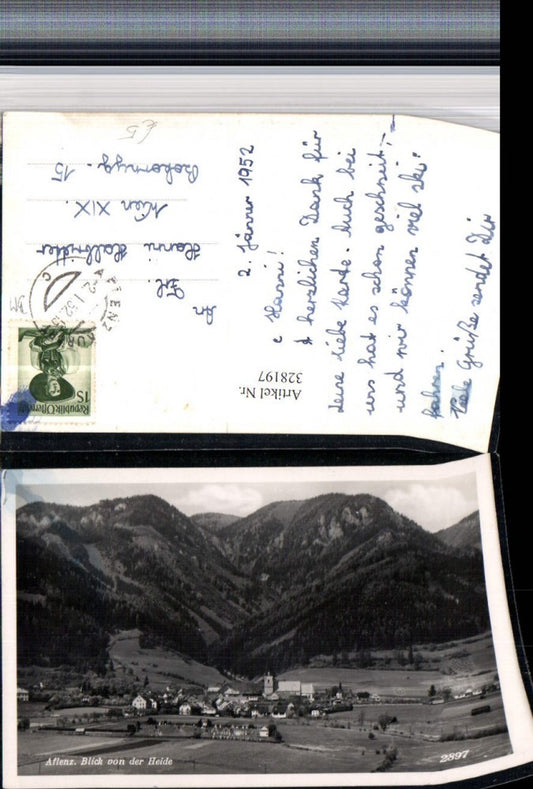 2. Jänner 1952
Hanni!
herzlichen Dank für
Deine liebe Karte. Auch bei
uns hat es schon geschneit,
und wir können viel Ski
fahren.
Viele Grüße sendet Dir
Artikel Nr.
328197
An
Frl.
Hanni Halbritter
Wien XIX.
15
£5
AFLENZ
Republik Österreich
1S
Aflenz. Blick von der Heide
2897